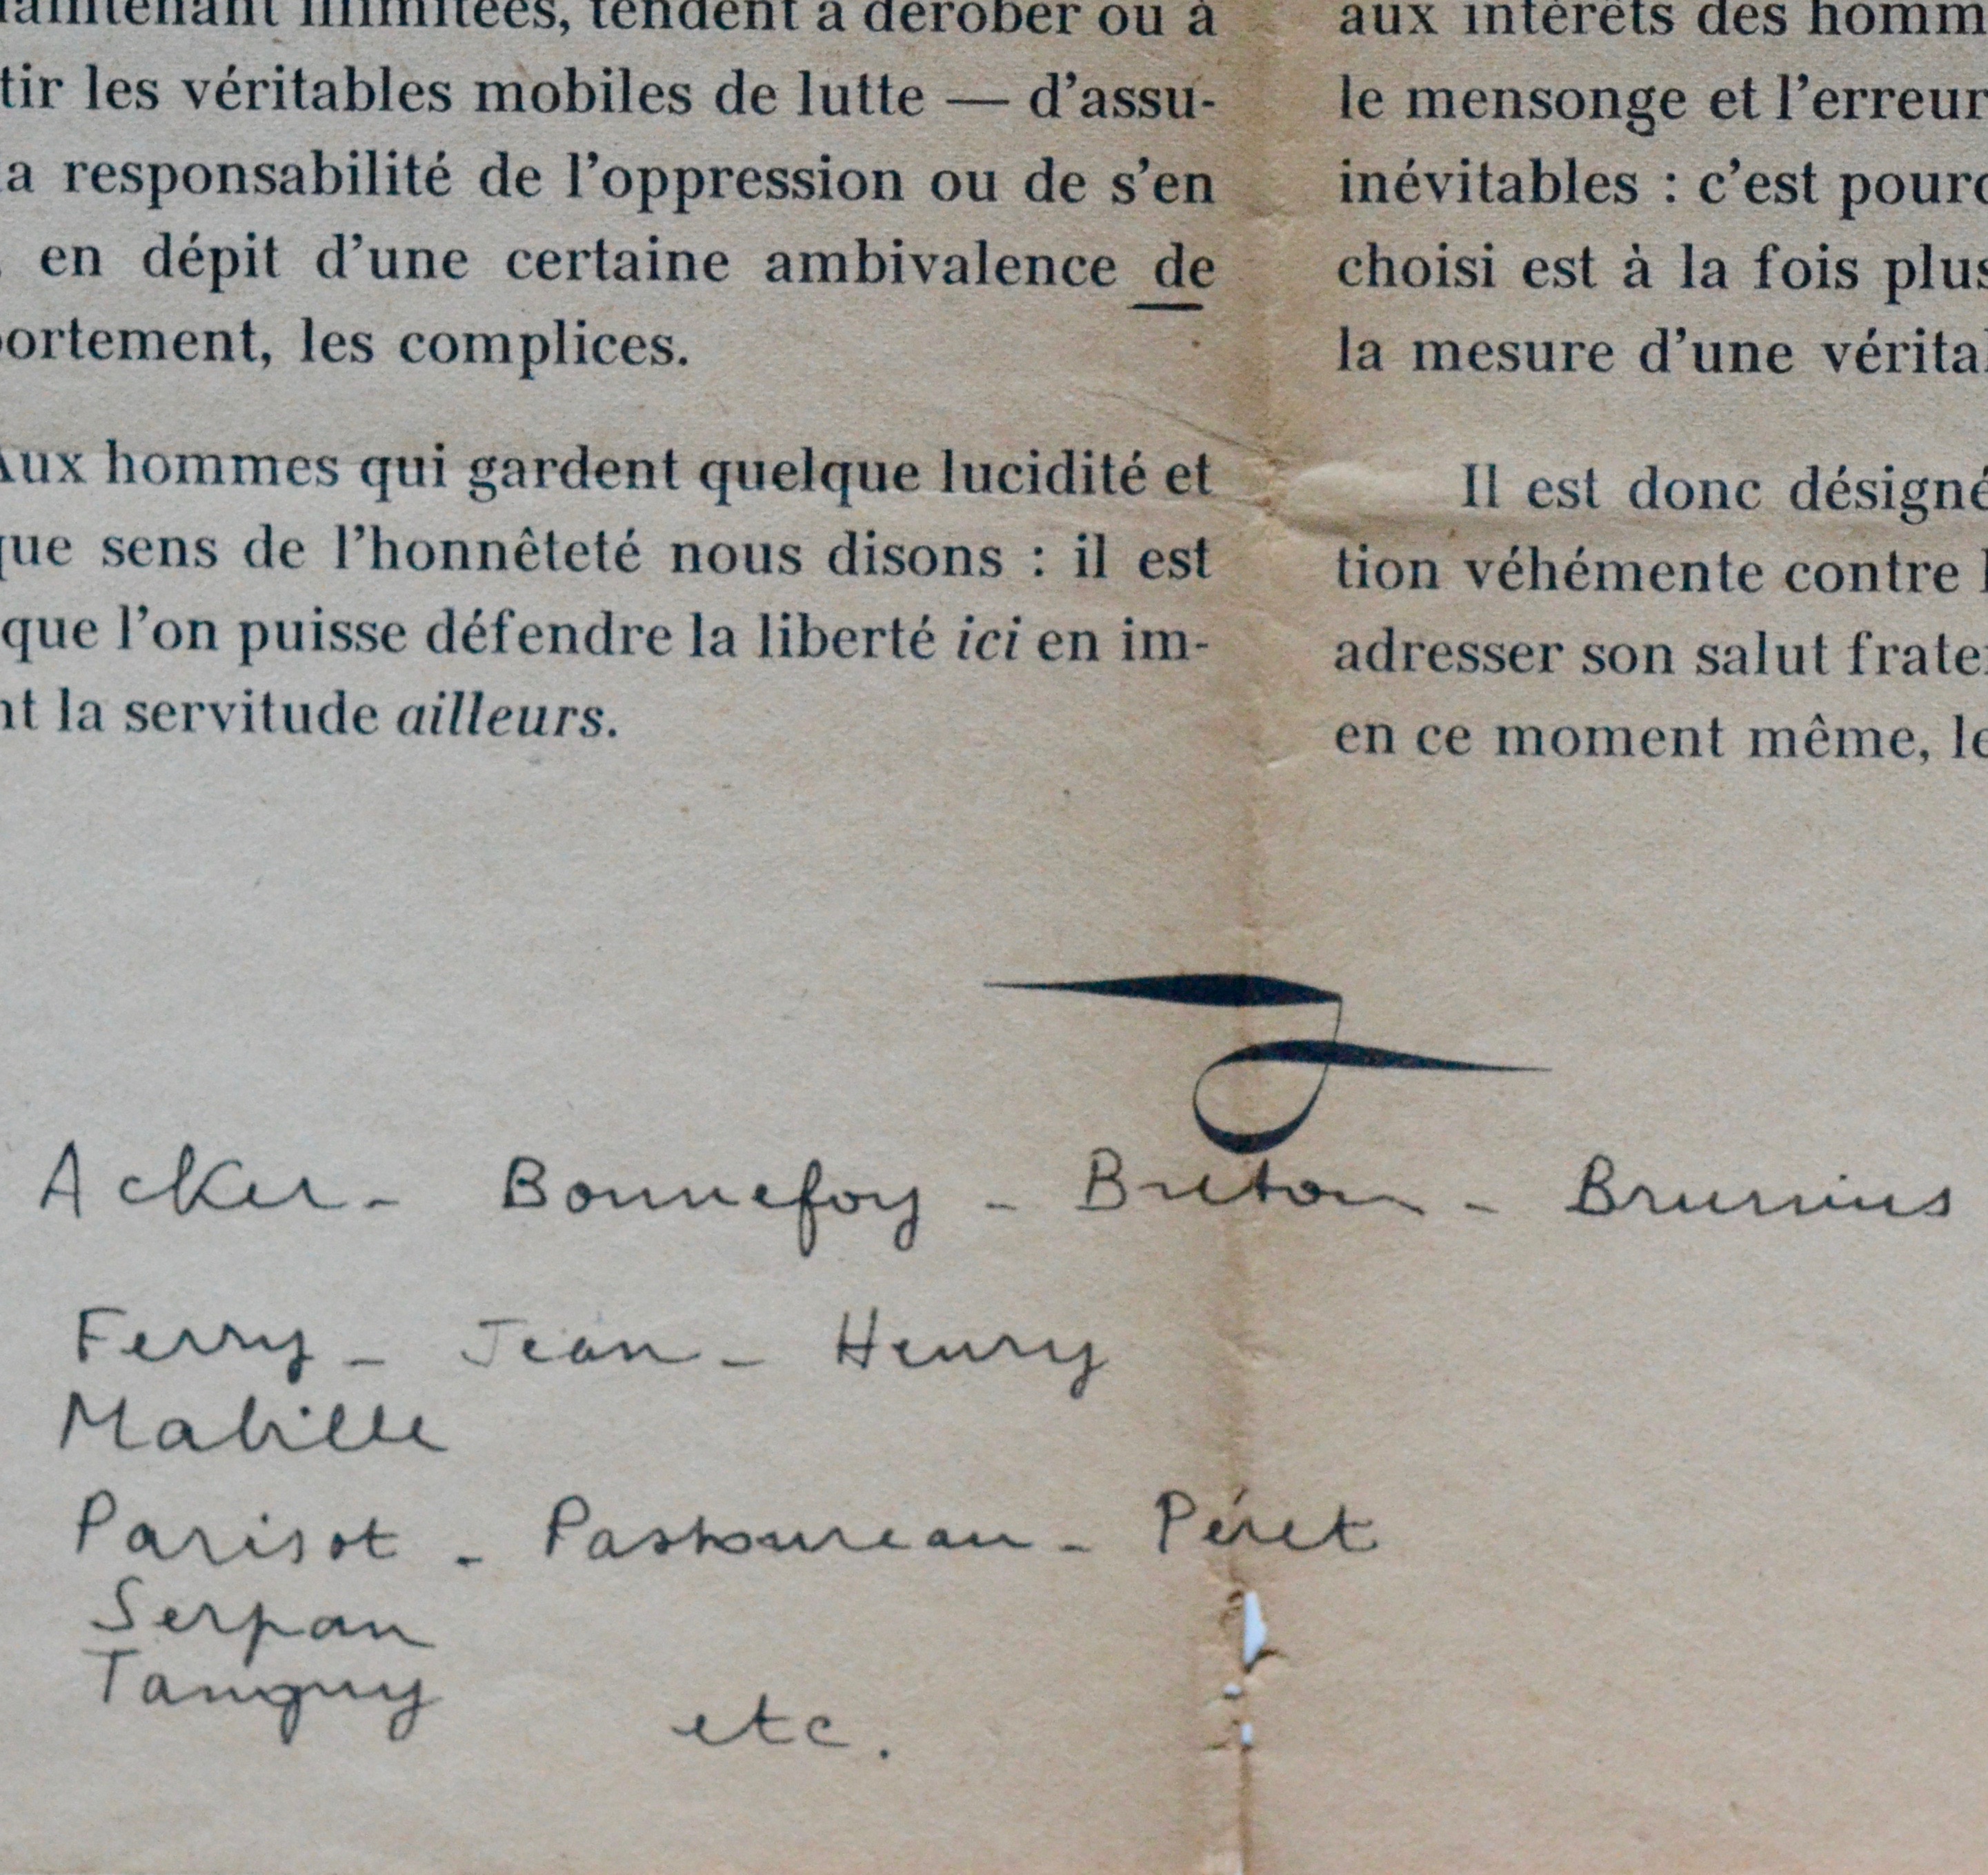 tendent à dérober ou à
tir les véritables mobiles de lutte — d'assu-
a responsabilité de l'oppression ou de s'en
en dépit d'une certaine ambivalence de
portement, les complices.
Aux hommes qui gardent quelque lucidité et
que sens de l'honnêteté nous disons : il est
que l'on puisse défendre la liberté ici en im-
nt la servitude ailleurs.
aux intérêts des homm
le mensonge et l'erreur
inévitables : c'est pourq
choisi est à la fois plus
la mesure d'une vérita
Il est donc désigné
tion véhémente contre l
adresser son salut frater
en ce moment même, le
Acker - Bonnefoy - Breton - Brunius
Ferry - Jean - Henry
Mabille
Parisot - Pastoureau - Péret
Serpan
Tanguy
etc.